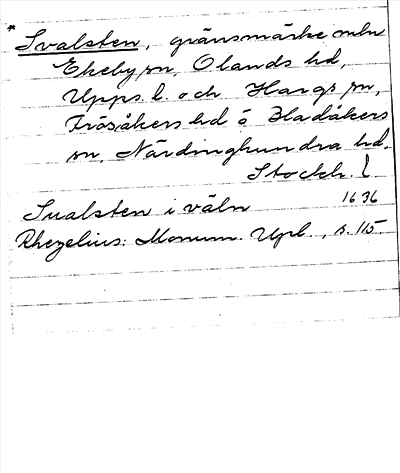 * Svalsten, gränsmärke mln
Ekeby sn, Olands hd,
Upps. l. och Hargs sn,
Frösåkers hd o Hadåkers
sn, Närdinghundra hd.
Stockh. l
Sualsten i väln 1636
Rhezelius: Monum. Upl., s. 115